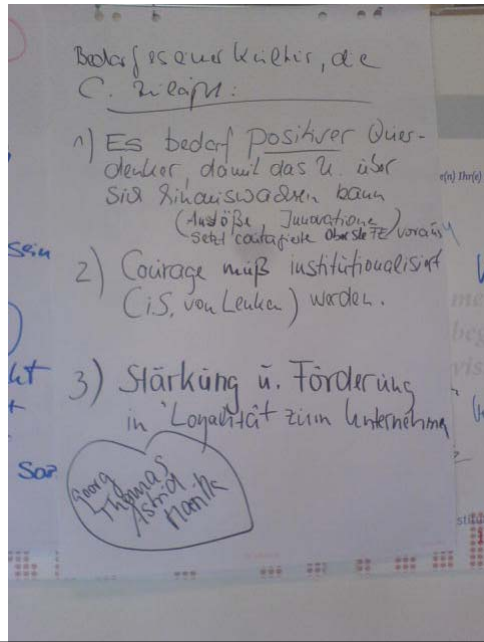 Bedarf es einer Kultur, die
C. zuläßt:
1) Es bedarf positiver Quer-
denker, damit das U. über
sich hinauswachsen kann
(Anstöße, Innovatione
setzt couragierte oberste FE) voraus
2) Courage muß institutionalisiert
(i.S. von Lenken) werden.
3) Stärkung u. Förderung
in Loyalität zum Unternehmen
Georg
Thomas
Astrid
e(n) Ihr(e)
sein
Soz